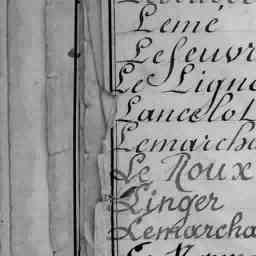 Leme
Lefeuvr
Le Lign
Lancelot
Lemarcha
Le Roux
Linger
Lemarcha